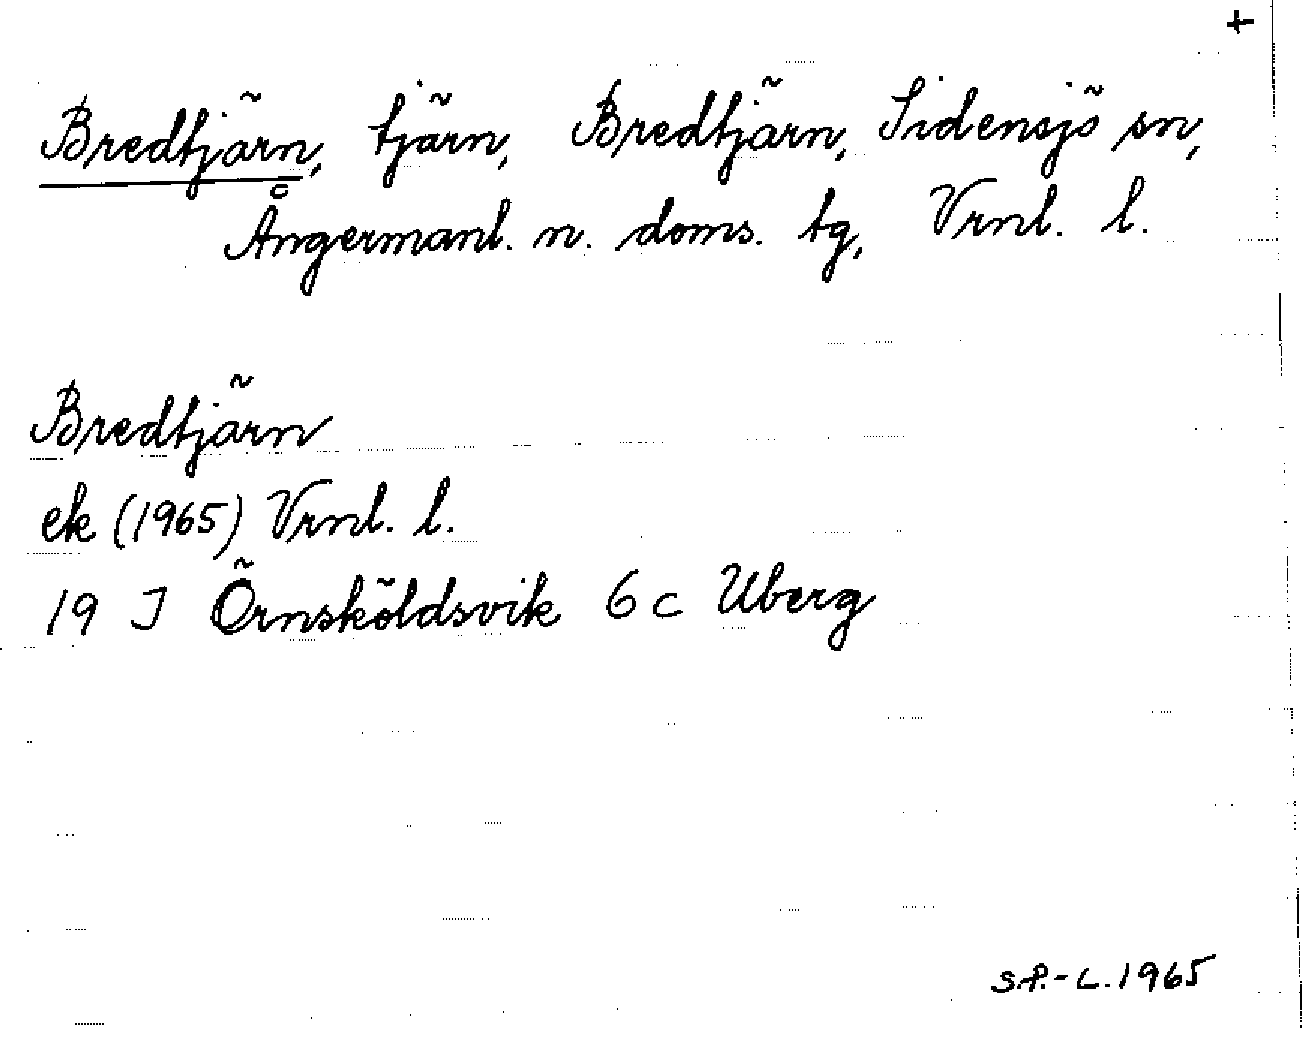 +
Bredtjärn, tjärn, Bredtjärn, Sidensjö sn,
Ångermanl. n. doms. tg, Vrnl. l.
Bredtjärn
ek (1965) Vrnl. l.
19 J Örnsköldsvik 6c Uberg
S.P.-L. 1965